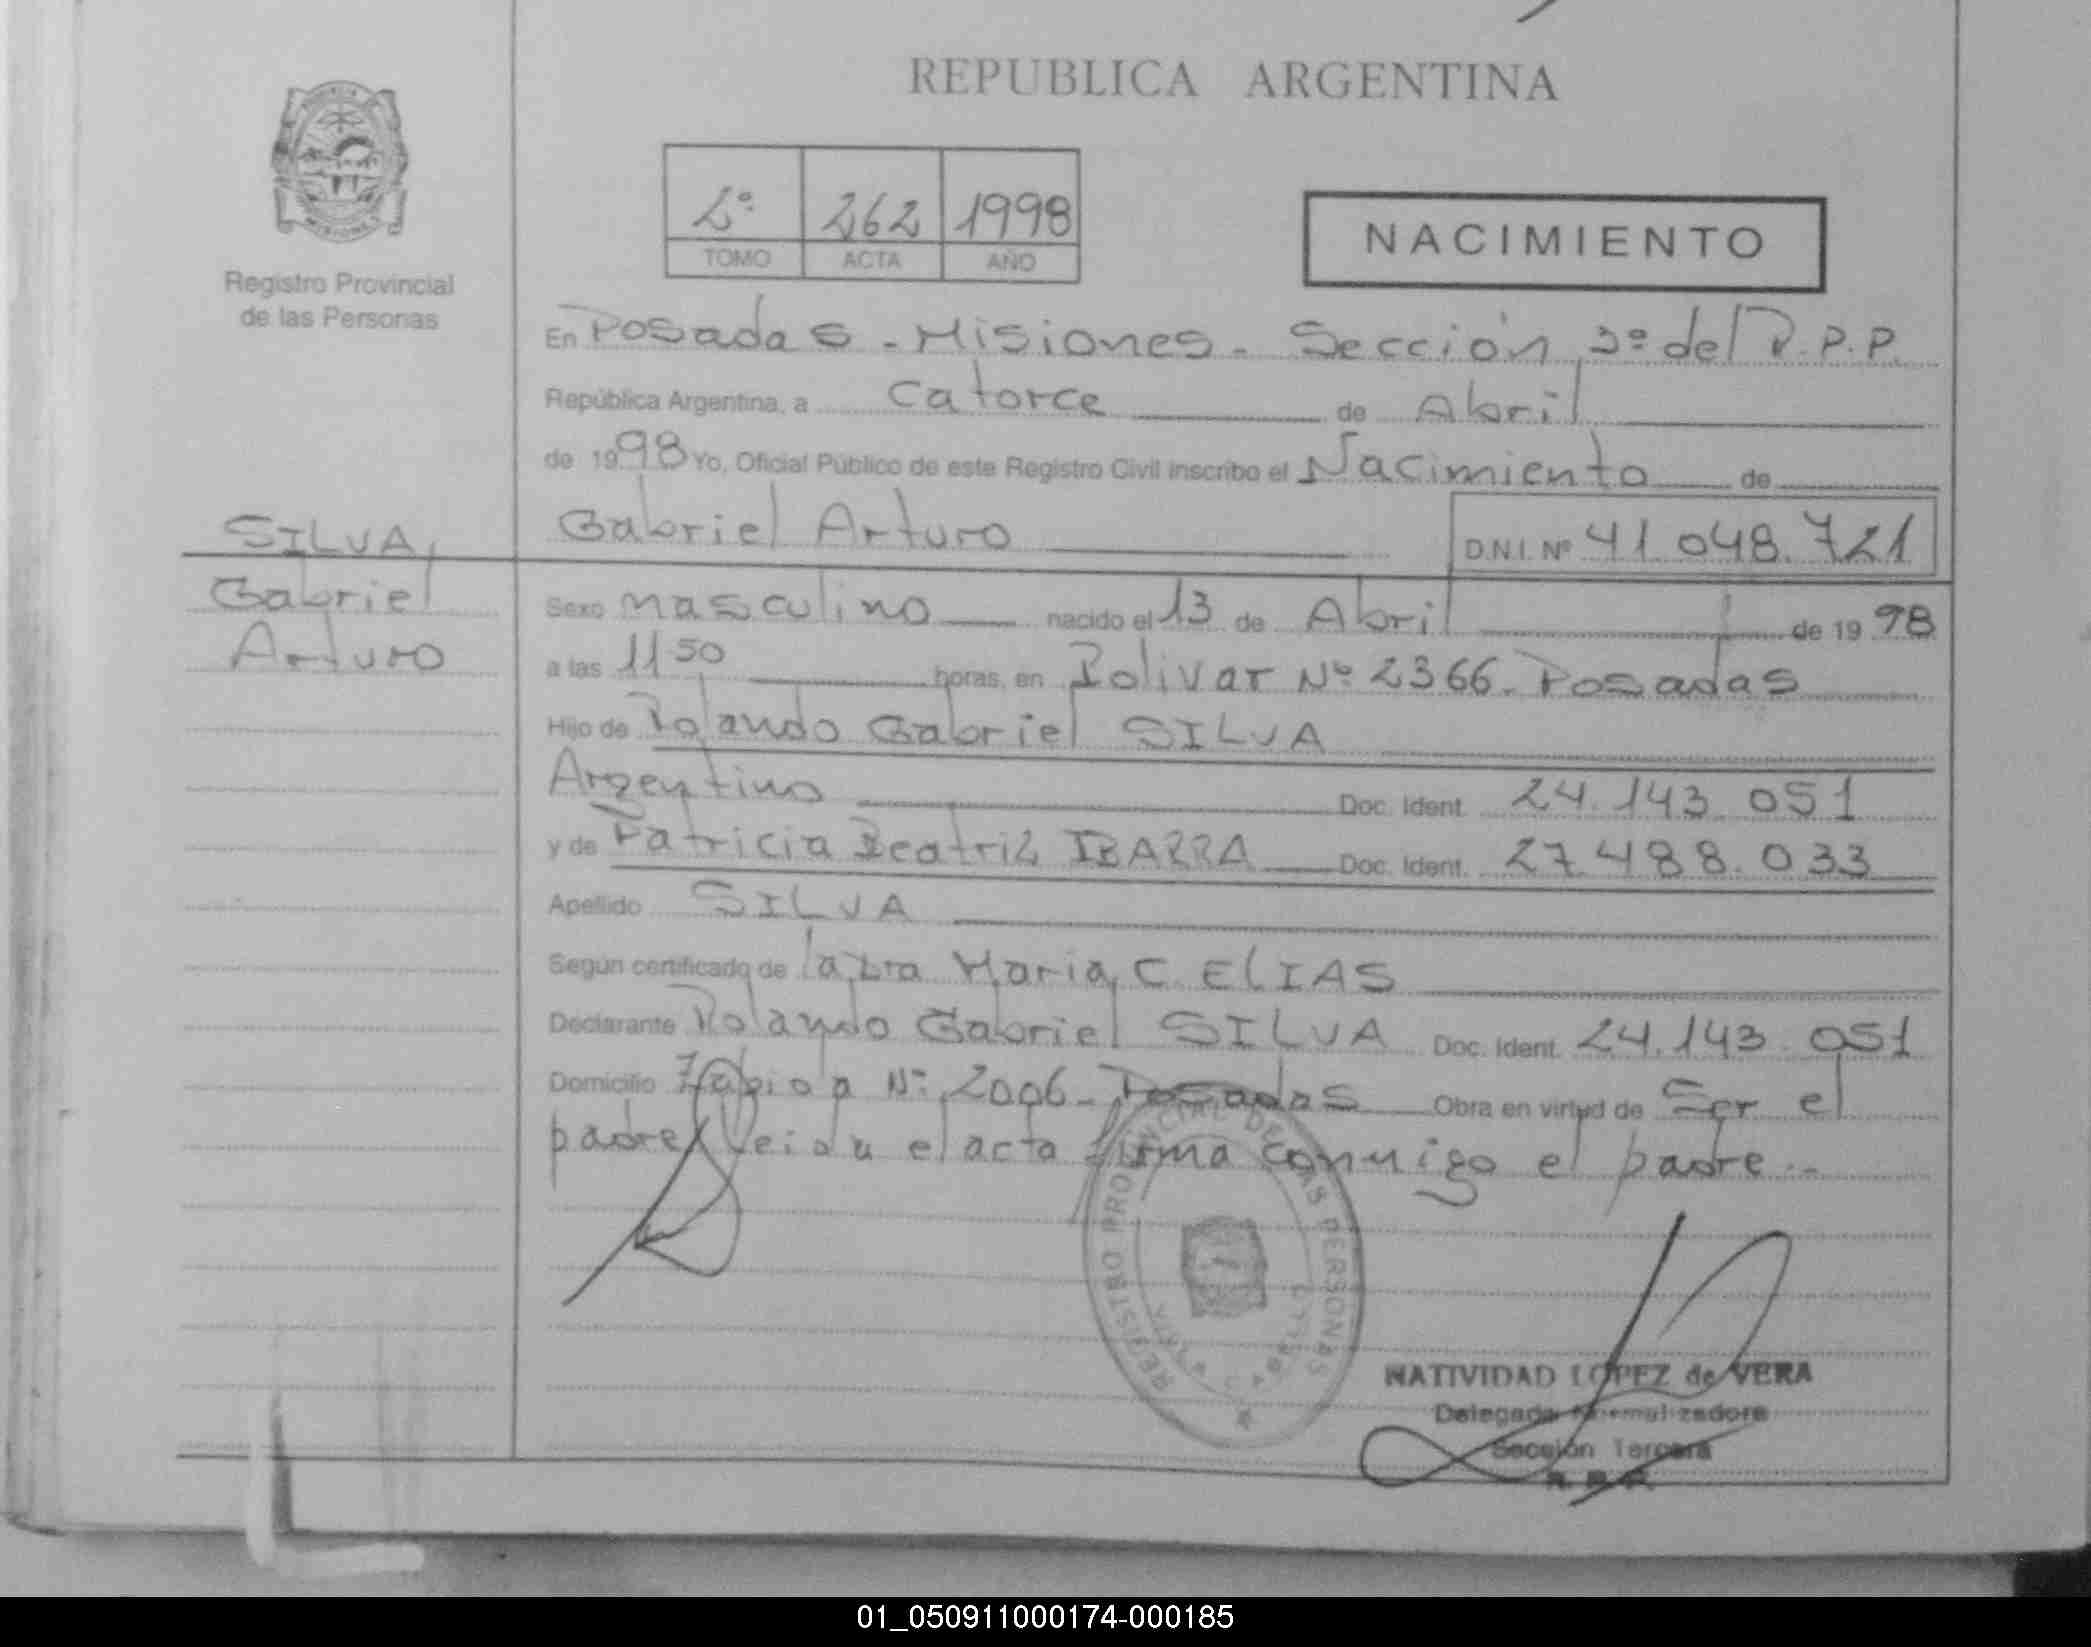 REPUBLICA ARGENTINA
Registro Provincial
de las Personas
2º 262 1998
TOMO ACTA AÑO
NACIMIENTO
En Posadas - Misiones - Sección 3º del R.P.P.
República Argentina, a catorce de Abril
de 1998 Yo, Oficial Público de este Registro Civil inscribo el Nacimiento de
Gabriel Arturo D.N.I. Nº 41.048.721
SILVA,
Gabriel
Arturo
Sexo masculino nacido el 13 de Abril de 1998
a las 11 50 horas, en Bolivar Nº 2366. Posadas
Hijo de Rolando Gabriel SILVA
Argentino Doc. Ident. 24.143.051
y de Patricia Beatriz IBARRA Doc. Ident. 27.488.033
Apellido SILVA
Según certificado de la Dra Maria C. ELIAS
Declarante Rolando Gabriel SILVA Doc. Ident. 24.143.051
Domicilio Nº 2006 - Posadas Obra en virtud de Ser el
padre Leida el acta firma conmigo el padre.-
REGISTRO PROVINCIAL DE LAS PERSONAS
VILLA CABELLO
NATIVIDAD LOPEZ de VERA
Delegada Normalizadora
Sección Tercera
R. P. P.
01_050911000174-000185